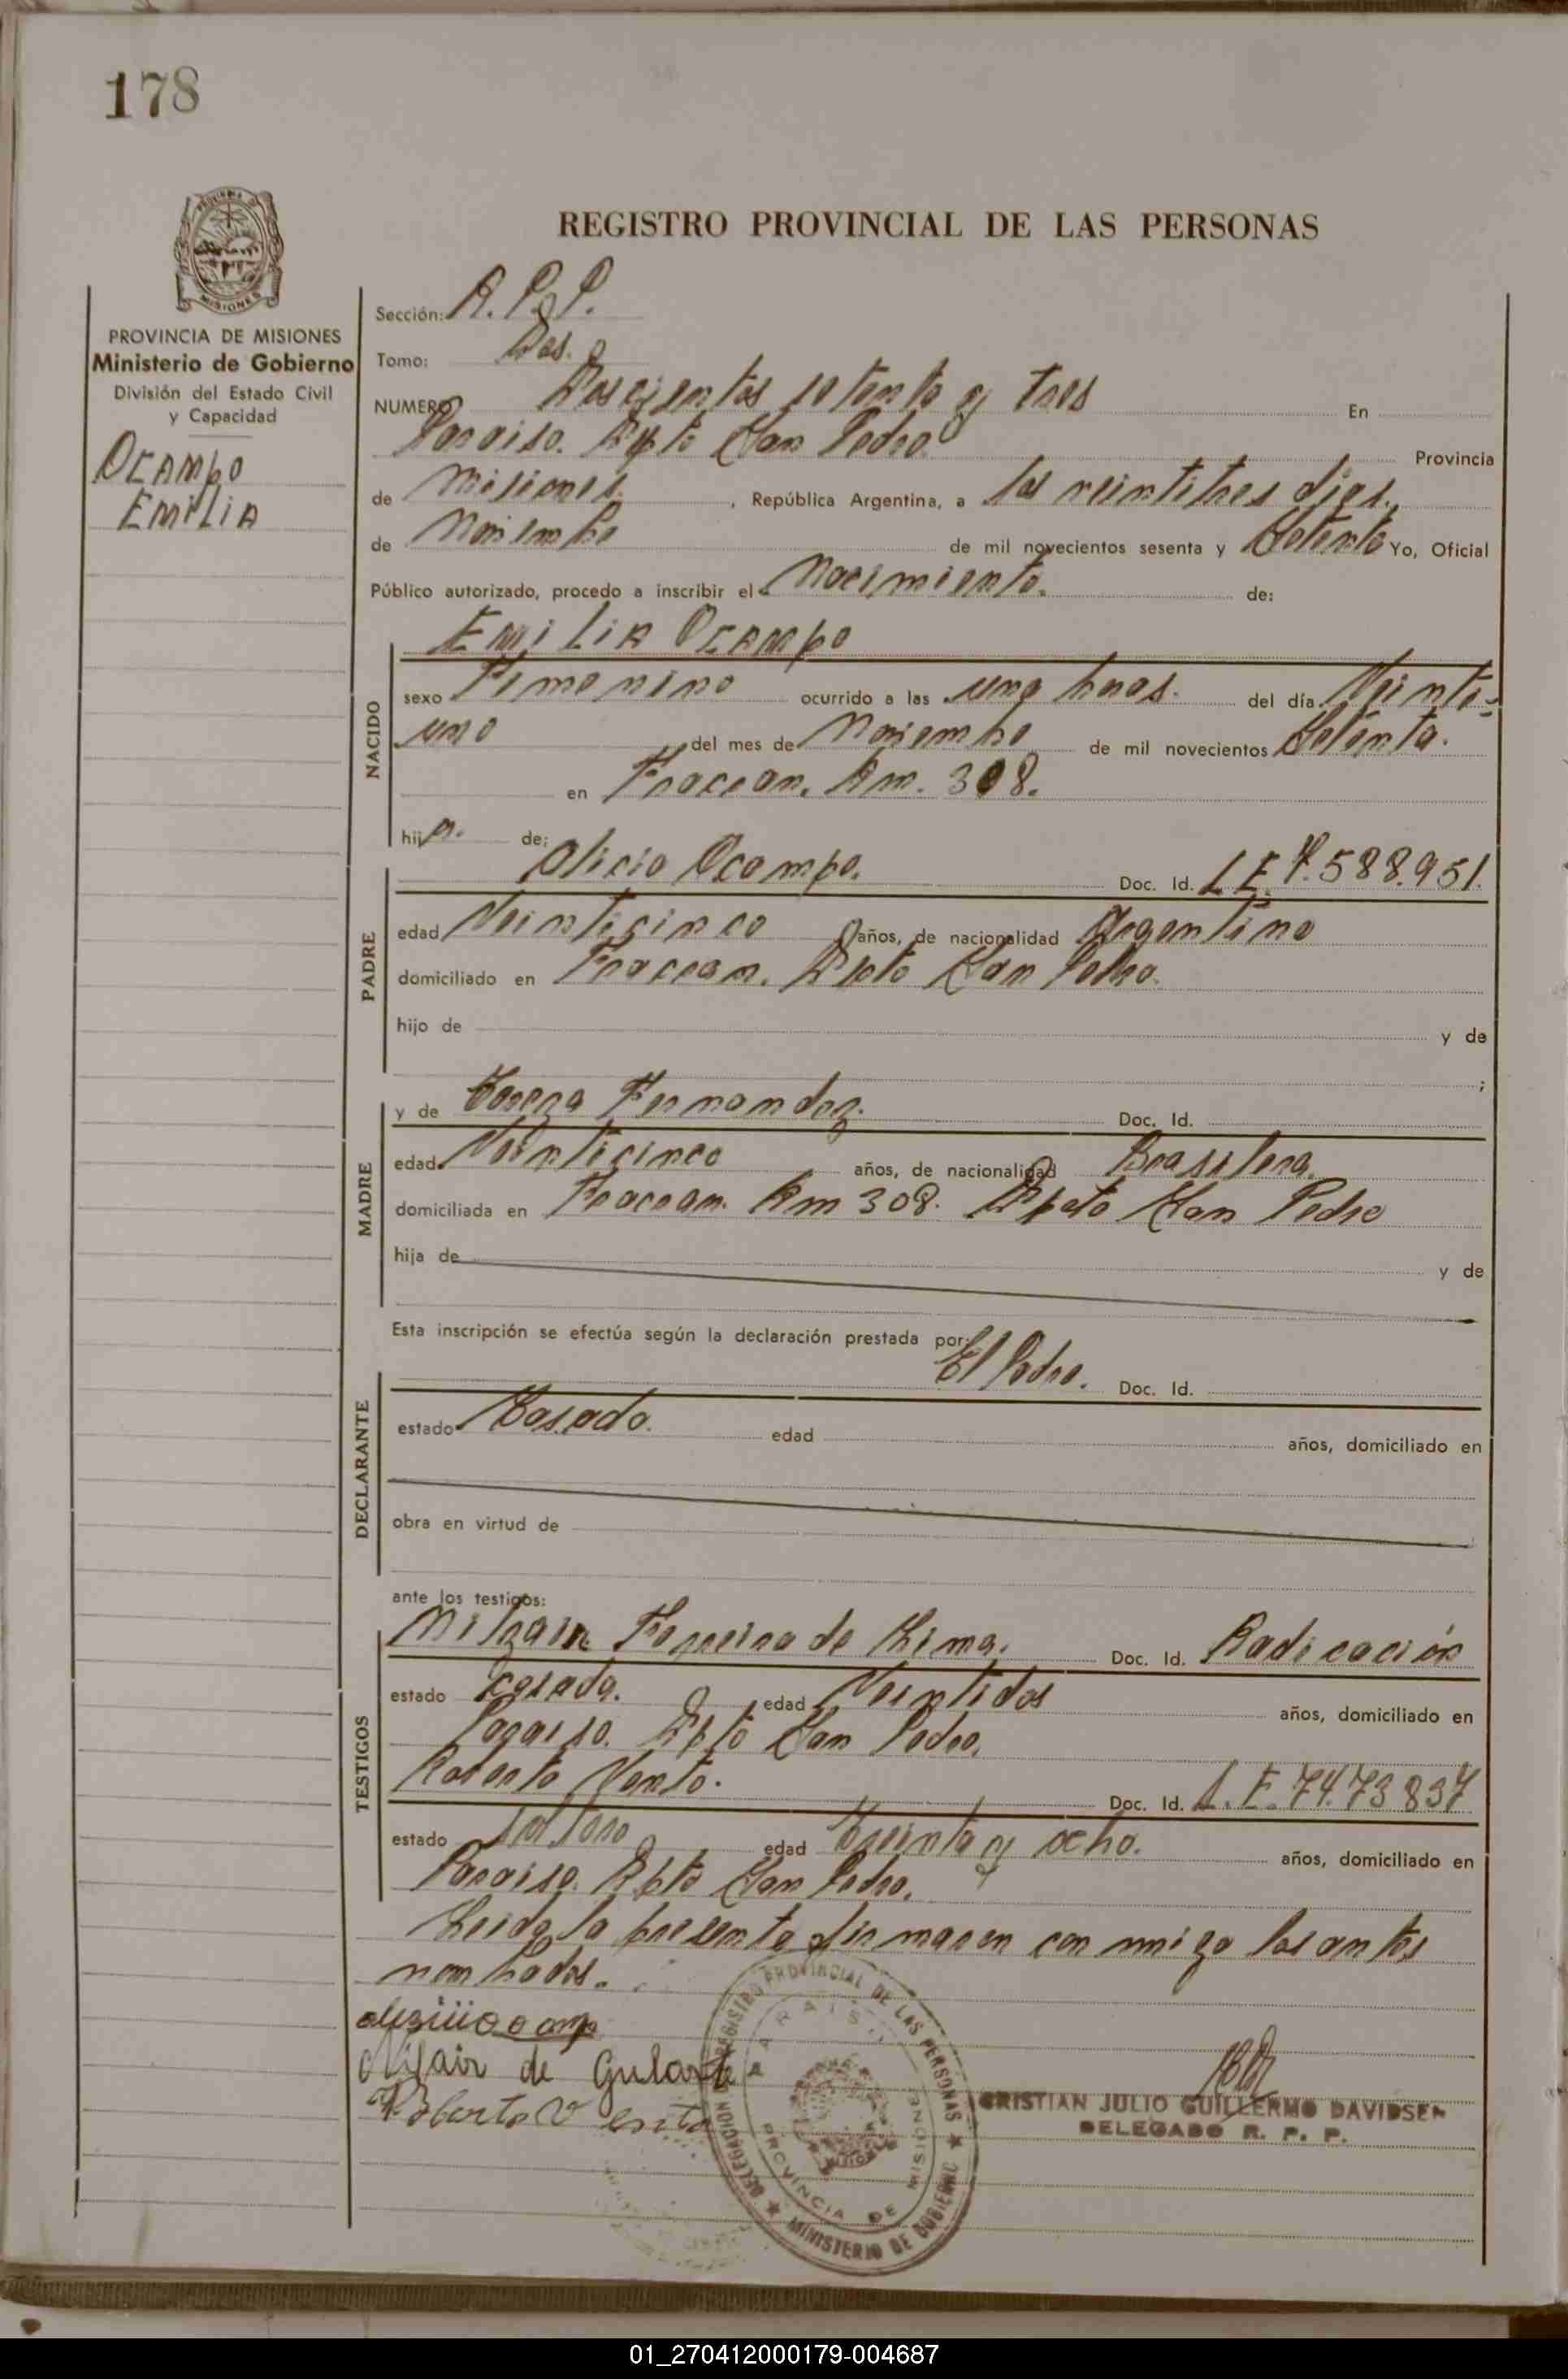 178
REGISTRO PROVINCIAL DE LAS PERSONAS
PROVINCIA DE MISIONES
Ministerio de Gobierno
División del Estado Civil
y Capacidad
Ocampo
Emilia
Sección: A. P. P.
Tomo: Dos.
NUMERO Doscientos setenta y Tres En
Paraiso. Dpto San Pedro Provincia
de Misiones, República Argentina, a los veintitres dias.
de Noviembre de mil novecientos sesenta y Setenta Yo, Oficial
Público autorizado, procedo a inscribir el Nacimiento. de:
NACIDO
Emilia Ocampo
sexo Femenino ocurrido a las una horas. del día Veinti-
uno del mes de Noviembre de mil novecientos Setenta.
en Fracran. Km. 308.
hija. de:
PADRE
Alicio Ocampo. Doc. Id. L E. 7.588.951.
edad Veinticinco años, de nacionalidad Argentino
domiciliado en Fracran. Dpto San Pedro.
hijo de y de
;
MADRE
y de Tereza Fernandez. Doc. Id.
edad Veinticinco años, de nacionalidad Brasilera.
domiciliada en Fracran. Km 308. Dpeto San Pedro
hija de y de
Esta inscripción se efectúa según la declaración prestada por:
DECLARANTE
El Padre. Doc. Id.
estado Casado. edad años, domiciliado en
obra en virtud de
ante los testigos:
TESTIGOS
Ferreira de Lima. Doc. Id. Radicación
estado Casada. edad Veintidos años, domiciliado en
Paraiso. Dpto San Pedro.
Roberto Vento. Doc. Id. L. E. 74.73 837
estado Soltero edad Treinta y ocho. años, domiciliado en
Paraiso. Dpto San Pedro.
Leida la presente firmaron con migo los antes
nombrados.
de Gularte
Roberto Vento
REGISTRO PROVINCIAL DE LAS PERSONAS ★ MINISTERIO DE GOBIERNO ★ DELEGACION
PARAISO
PROVINCIA DE MISIONES
CRISTIAN JULIO GUILLERMO DAVIDSEN
DELEGADO R. P. P.
01_270412000179-004687